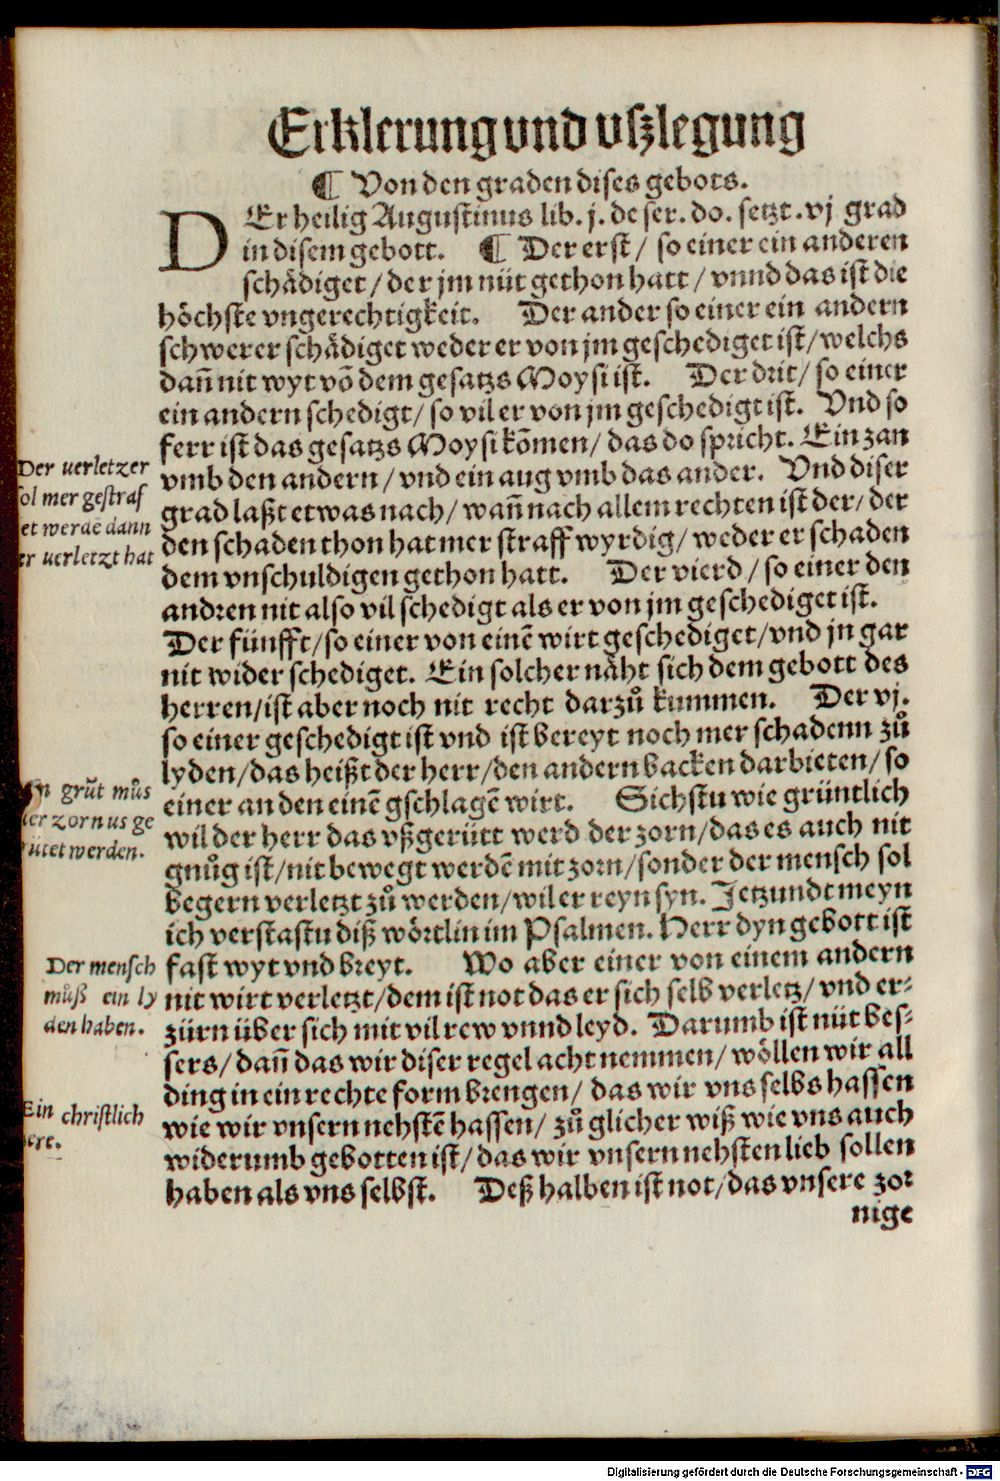 Erklerung vnd vſzlegung
¶ Von den graden diſes gebots.
DEr heilig Auguſtinus lib. j. de ſer. do. ſetzt .vj grad
in diſem gebott. ¶ Der erſt / ſo einer ein anderen
ſchådiget / der jm nüt gethon hatt / vnnd das iſt die
höchſte vngerechtigkeit. Der ander ſo einer ein andern
ſchwerer ſchådiget weder er von jm geſchediget iſt / welchs
dañ nit wyt võ dem geſatzs Moyſi iſt. Der drit / ſo einer
ein andern ſchedigt / ſo vil er von jm geſchedigt iſt. Vnd ſo
ferr iſt das geſatzs Moyſi kõmen / das do ſpricht. Ein zan
vmb den andern / vnd ein aug vmb das ander. Vnd diſer
grad laßt etwas nach / wañ nach allem rechten iſt der / der
den ſchaden thon hat mer ſtraff wyrdig / weder er ſchaden
dem vnſchuldigen gethon hatt. Der vierd / ſo einer den
andren nit alſo vil ſchedigt als er von jm geſchediget iſt.
Der fünfft / ſo einer von einẽ wirt geſchediget / vnd jn gar
nit wider ſchediget. Ein ſolcher nåht ſich dem gebott des
herren / iſt aber noch nit recht darzů kummen. Der vj.
ſo einer geſchedigt iſt vnd iſt bereyt noch mer ſchadenn zů
lyden / das heißt der herr / den andern backen darbieten / ſo
einer an den einẽ gſchlagẽ wirt. Sichſtu wie grüntlich
wil der herr das vßgerütt werd der zorn / das es auch nit
gnůg iſt / nit bewegt werdẽ mit zorn / ſonder der menſch ſol
begern verletzt zů werden / wil er reyn ſyn. Jetzundt meyn
ich verſtaſtu diß wörtlin im Pſalmen. Herr dyn gebott iſt
faſt wyt vnd breyt. Wo aber einer von einem andern
nit wirt verletzt / dem iſt not das er ſich ſelb verletz / vnd er⸗
zürn über ſich mit vil rew vnnd leyd. Darumb iſt nüt beſ⸗
ſers / dañ das wir diſer regel acht nemmen / wöllen wir all
ding in ein rechte form brengen / das wir vns ſelbs haſſen
wie wir vnſern nehſtẽ haſſen / zů glicher wiß wie vns auch
widerumb gebotten iſt / das wir vnſern nehſten lieb ſollen
haben als vns ſelbſt. Deß halben iſt not / das vnſere zor
nige
Der uerletzer
ſol mer geſtraf
et werde dann
er uerletzt hat
grůt můs
der zorn us ge
rütet werden.
Der menſch
můß ein ly
den haben.
Ein chriſtlich
lere.
Digitalisierung gefördert durch die Deutsche Forschungsgemeinschaft - DFG